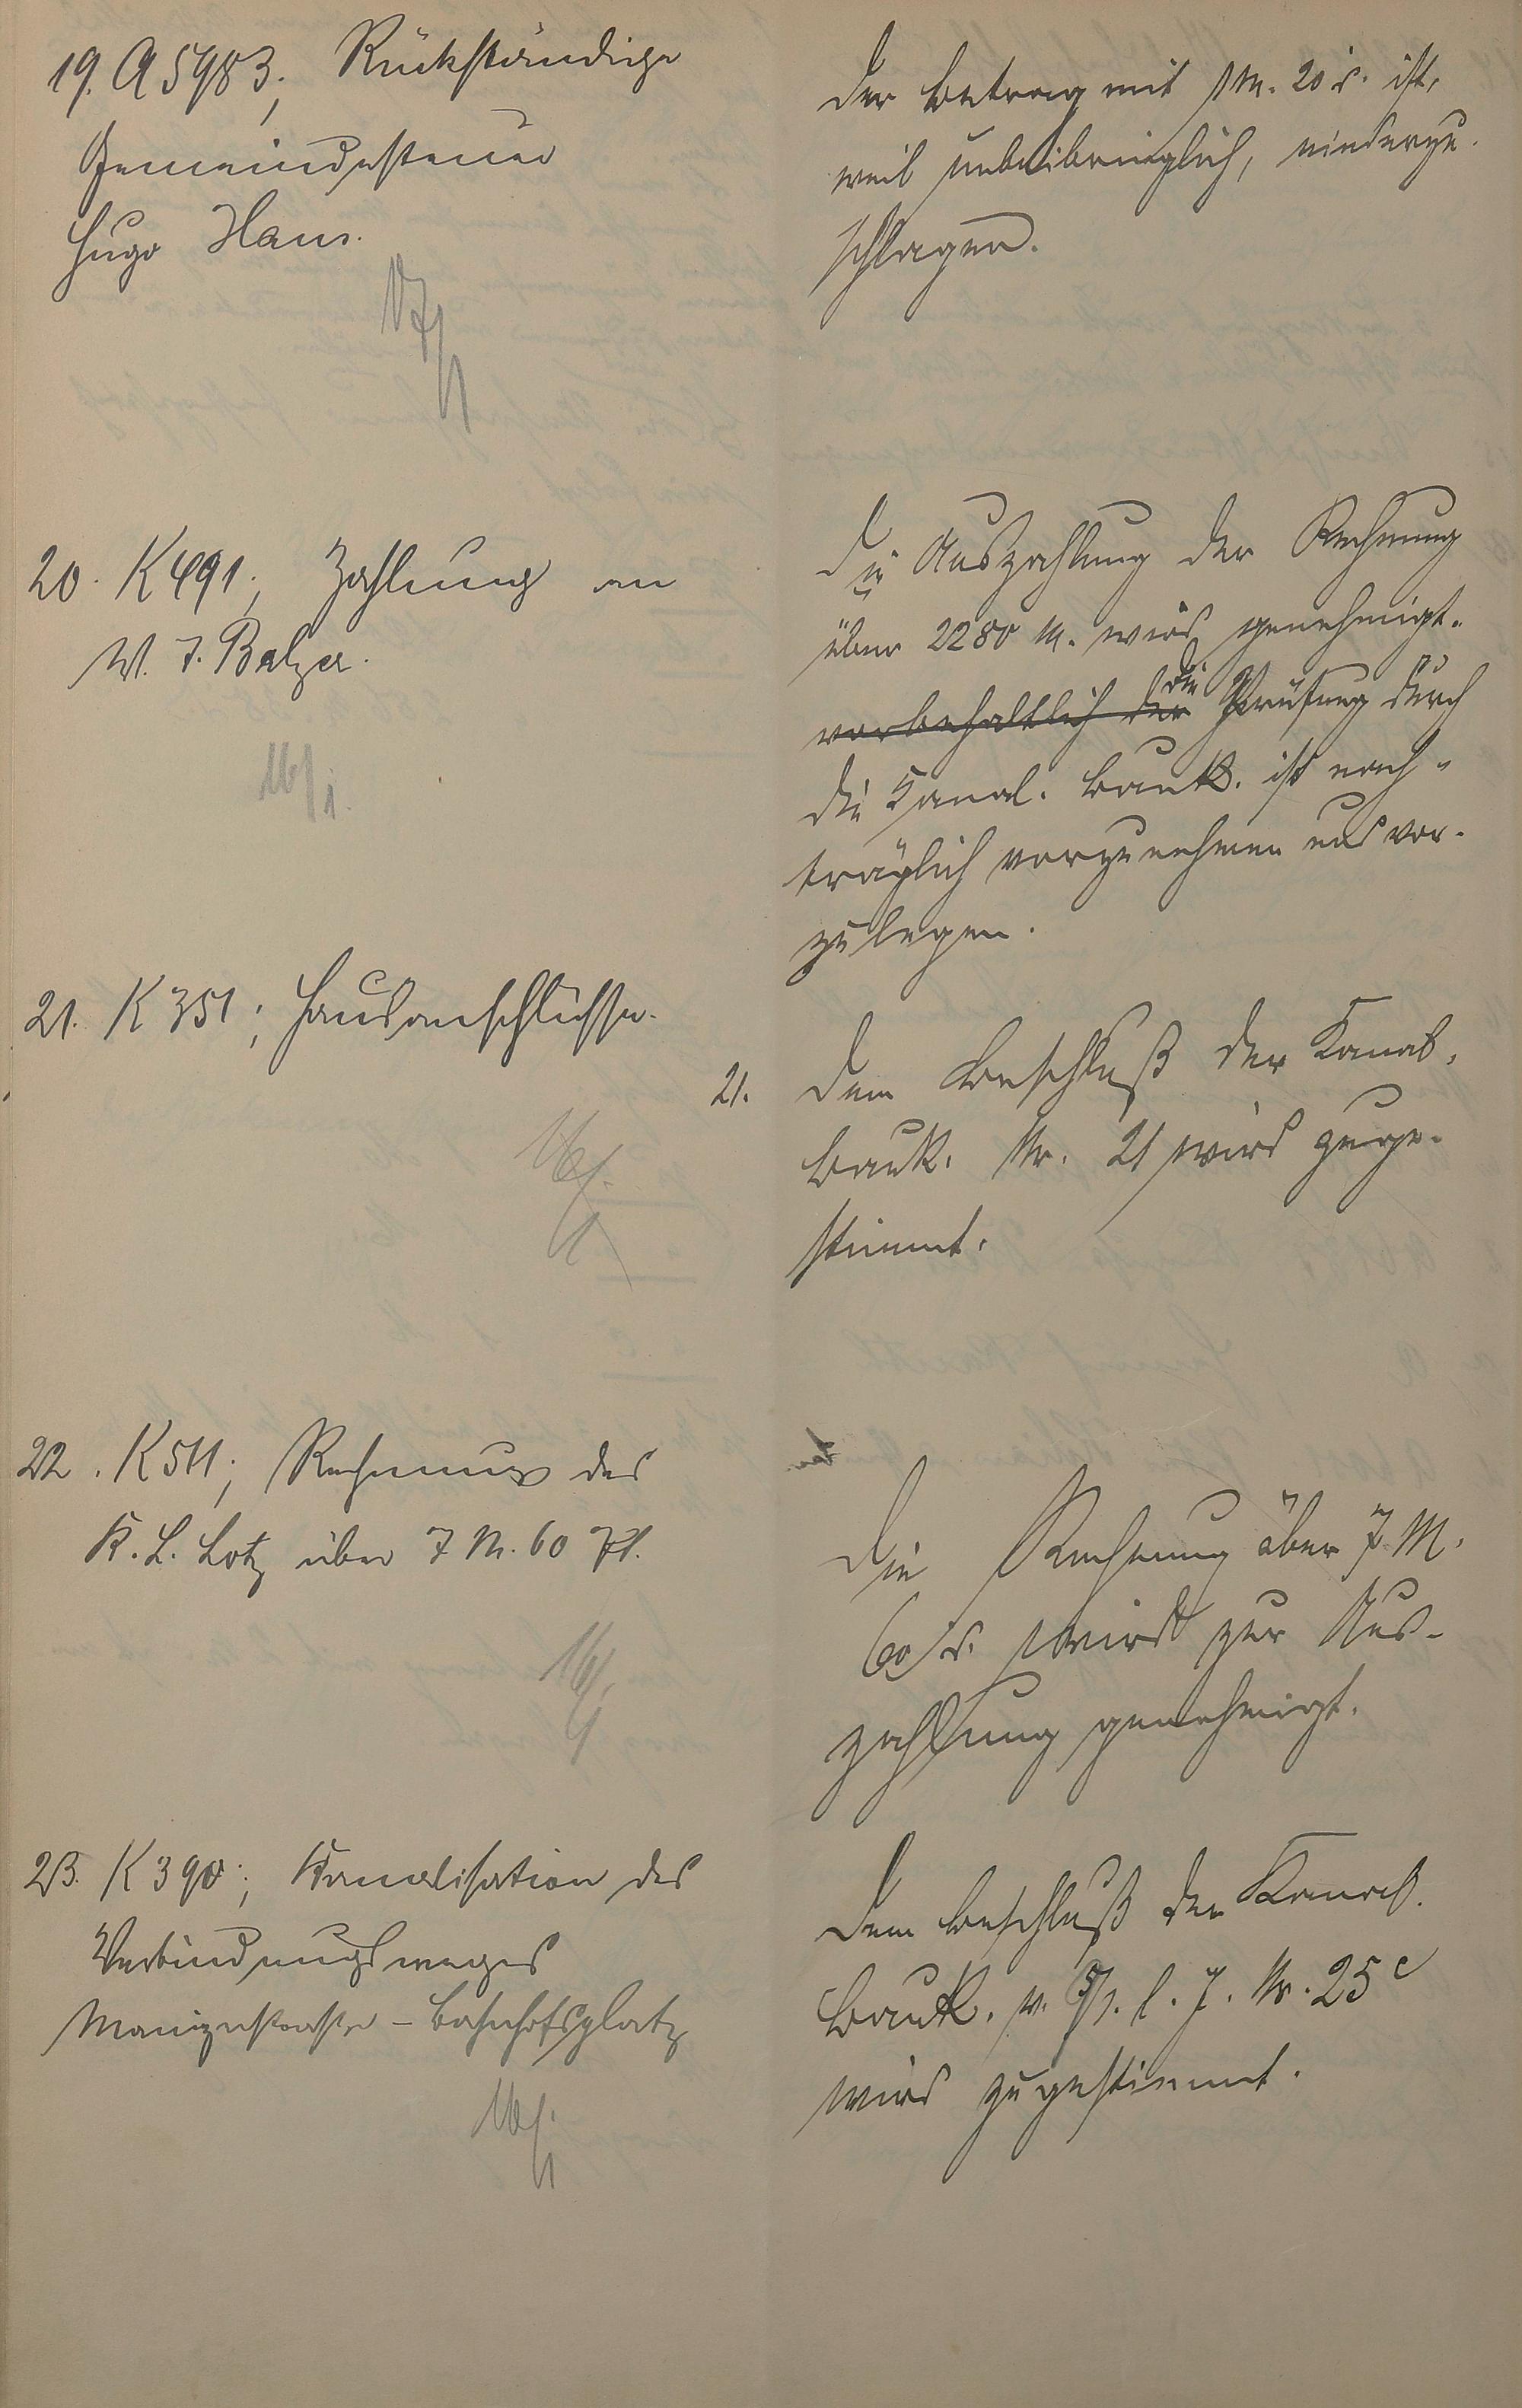 19. A 5983; Rückständige
Gemeindesteuer
Hugo Haus.
17/1
Der Betrag mit 1 M. 20 d. ist,
weil unbeibringlich, niederzu-
schlagen.
20. K 491; Zahlung an
W. J. Balzer.
16/1.
Die Auszahlung der Rechnung
über 2280 M. wird genehmigt.
vorbehaltlich der die Prüfung durch
die Kanal. Bauk. ist nach-
träglich vorzunehmen und vor-
zulegen.
21. K 351; Hausanschlüsse.
16/1
21. Dem Beschluß der Kanal.
Bauk. Nr. 21 wird zuge-
stimmt.
22. K 511; Rechnung des
K. L. Lotz über 7 M. 60 Pf.
16/1
Die Rechnung über 7 M.
60 d. wird zur Aus-
zahlung genehmigt.
23. K 390; Kanalisation des
Verbindungsweges
Mainzerstraße - Bahnhofsplatz
16/1
Dem Beschluß der Kanal.
Bauk. v. 5/1. l. J. Nr. 25 c
wird zugestimmt.